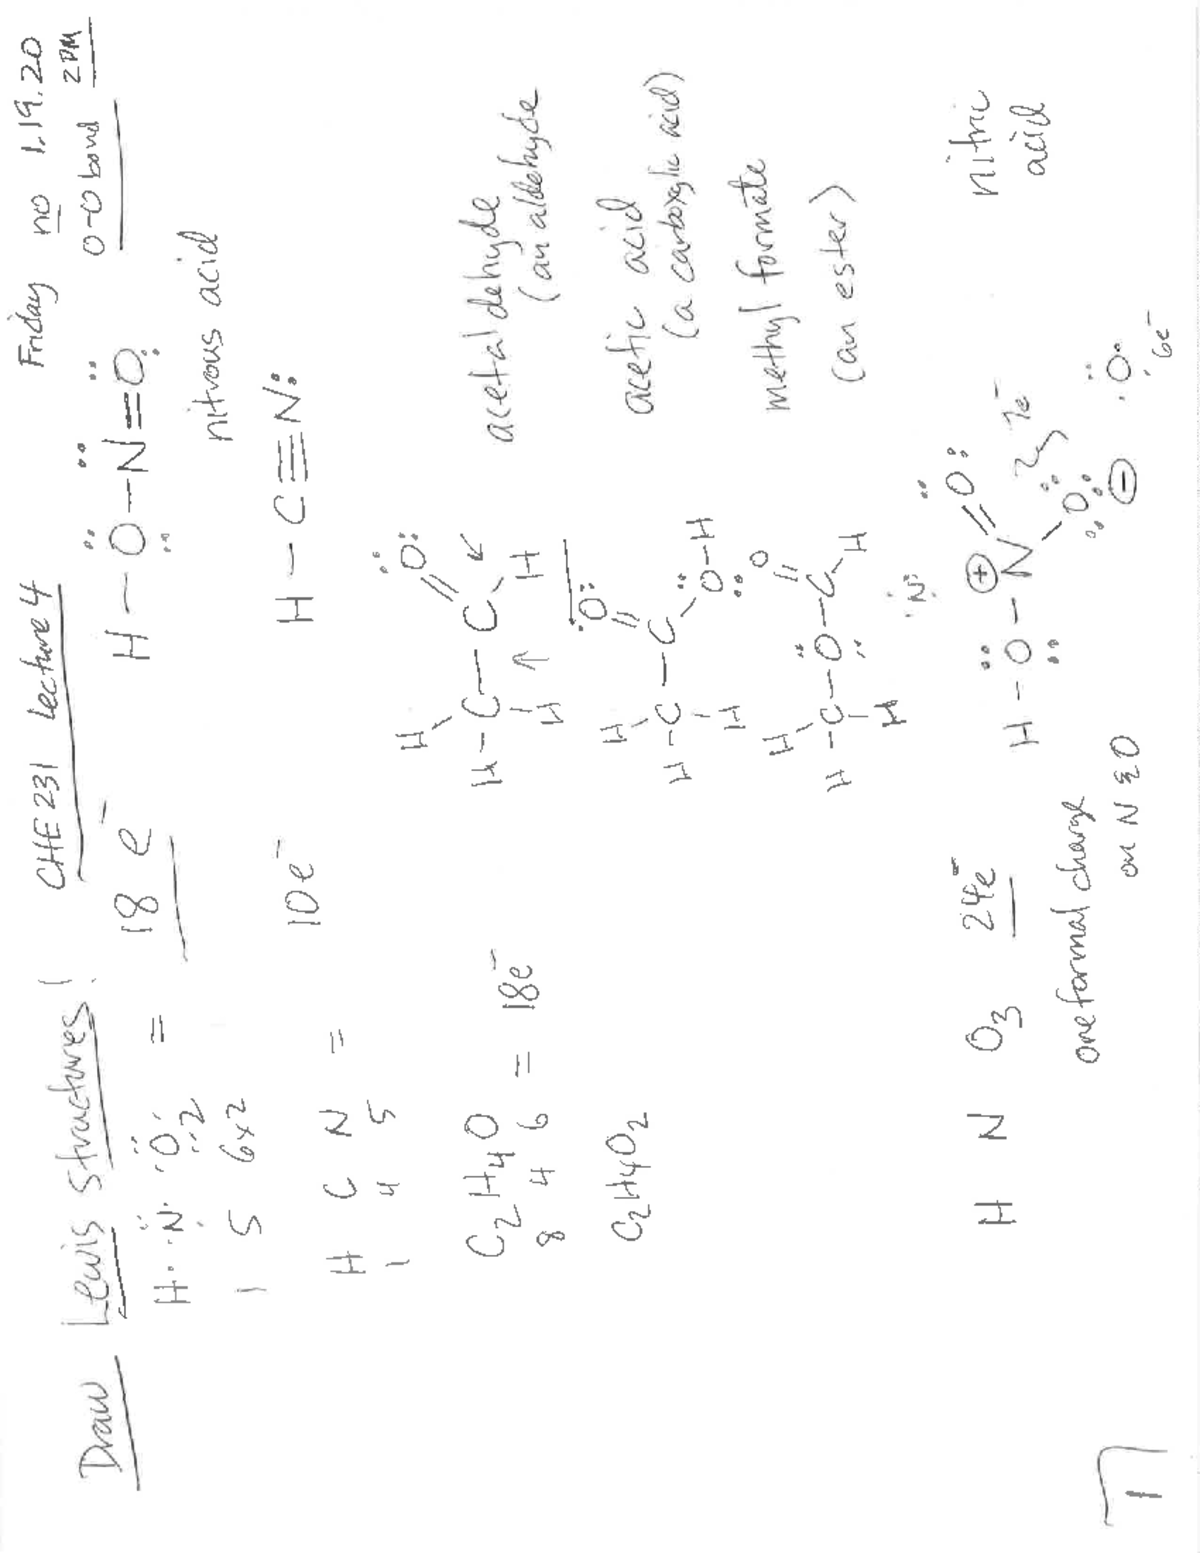 Friday no 1.19.20
CHE 231 Lecture 4 O-O bond 2PM
Draw Lewis Structures! 18 e⁻ H–O–N=O
H· ·N· ·O· 2 =
1 5 6x2 nitrous acid
H C N = 10e⁻ H–C≡N:
1 4 5
C₂H₄O = 18e⁻ H–C–C acetaldehyde
8 4 6 (an aldehyde
H H H O
C₂H₄O₂ H–C–C O–H acetic acid
H H O (a carboxylic acid)
H–C–O–C–H methyl formate
H H O (an ester)
·N:
H N O₃ 24e⁻ H–O–N⊕ =O: nitric
acid
O ⊖ 7e⁻
one formal charge ·O: 6e⁻
on N & O
1